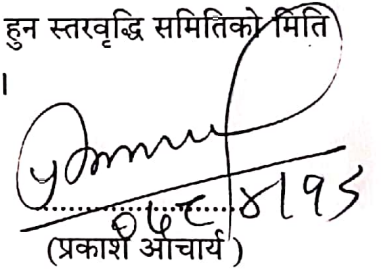 हुन स्तरवृद्धि समितिको मिति
।
०७९/४/१८
(प्रकाश आचार्य)